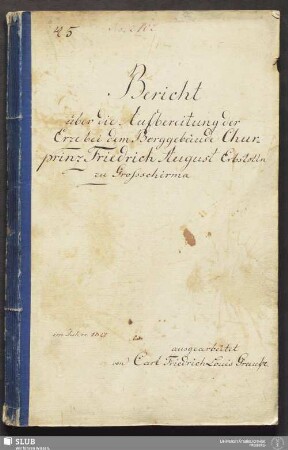 45
Bericht
über die Aufbereitung der
Erze bei dem Berggebäude Chur-
prinz Friedrich August Erbstolln
zu Grosschirma
im Jahre
ausgearbeitet
von Carl Friedrich Louis
SLUB